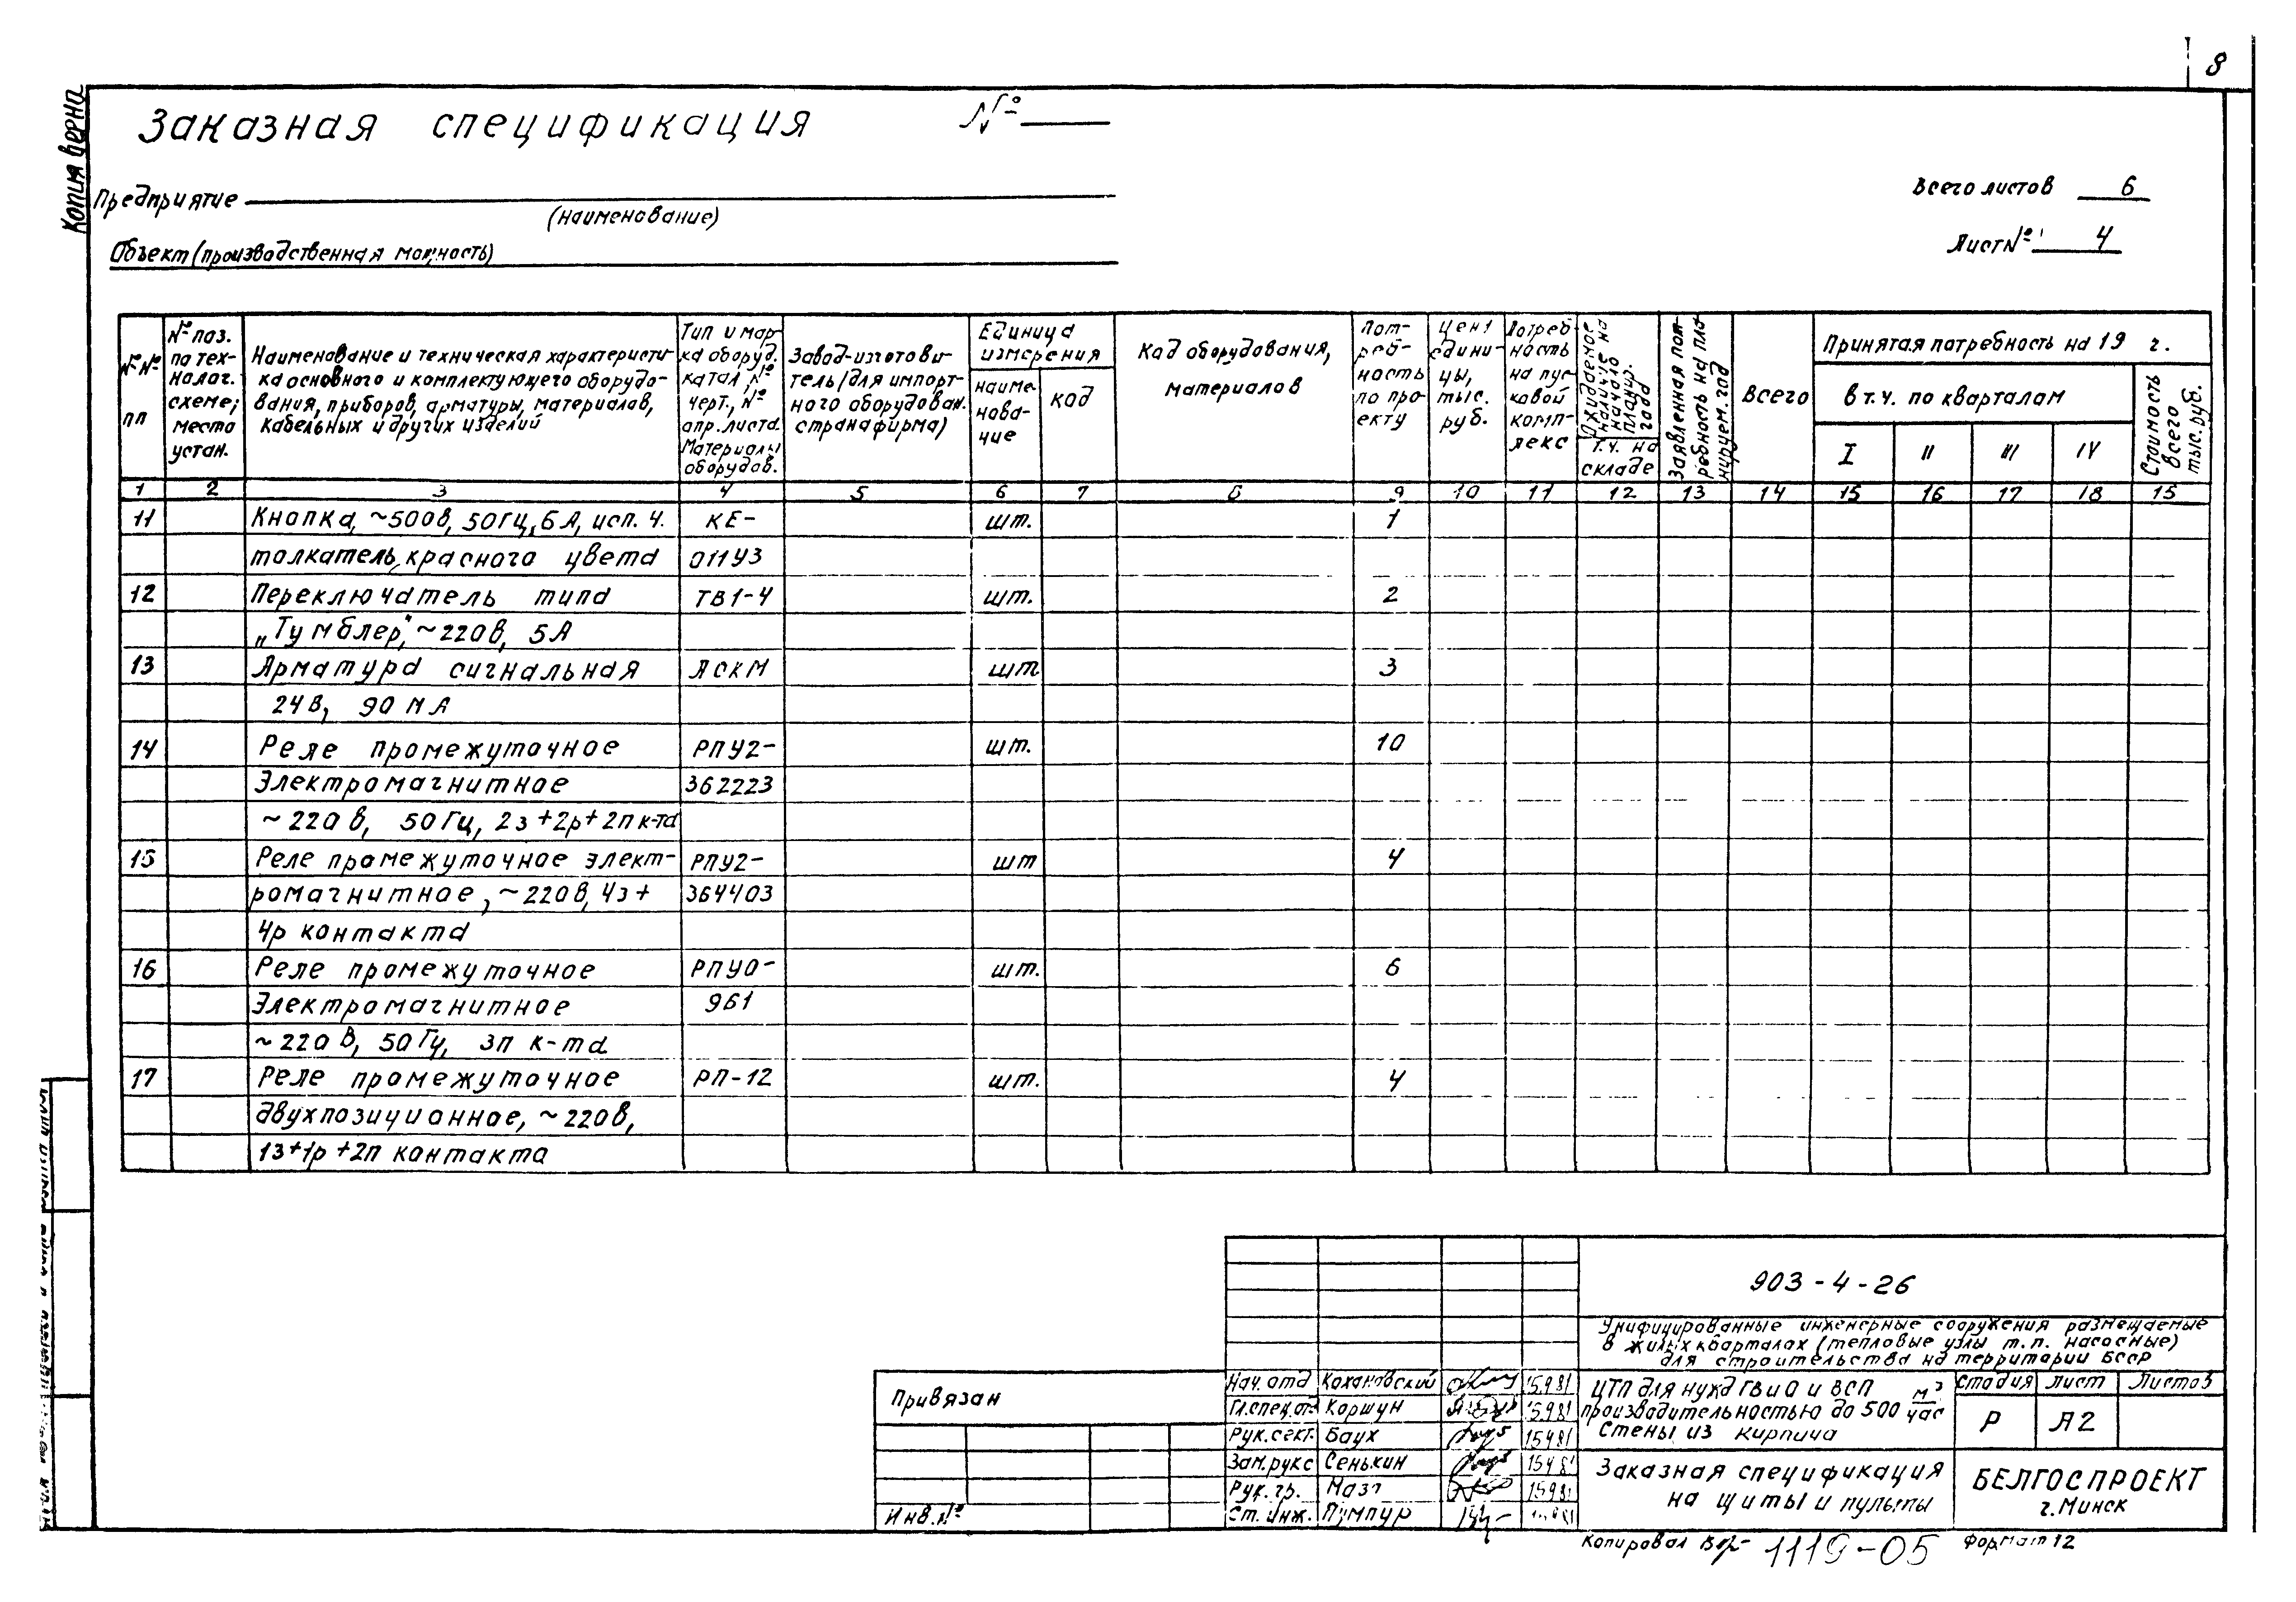 8
Копия верна
Заказная спецификация №
Предприятие
(наименование)
Объект (производственная мощность)
Всего листов 6
Лист № 4
№№ пп
№ поз. по технолог. схеме; место устан.
Наименование и техническая характеристи-
ка основного и комплектующего оборудо-
вания, приборов, арматуры, материалов,
кабельных и других изделий
Тип и мар-
ка оборуд.
катал., №
черт., №
опр. листа.
Материалы
оборудов.
Завод-изготови-
тель (для импорт-
ного оборудован.
страна фирма)
Единица
измерения
наиме-
нова-
ние
код
Код оборудования,
материалов
Пот-
реб-
ность
по про-
екту
Цена
едини-
цы,
тыс.
руб.
Потреб-
ность
на пус-
ковой
комп-
лекс
Ожидаемое
наличие на
начало
планир.
года
т.ч. на
складе
Заявленная пот-
ребность на пла-
нируем. год
Всего
Принятая потребность на 19 г.
в т.ч. по кварталам
I II III IV
Стоимость
всего
тыс. руб.
1 2 3 4 5 6 7 8 9 10 11 12 13 14 15 16 17 18 15
11 Кнопка, ~500в, 50Гц, 6А, исп. 4. КЕ- шт. 1
толкатель красного цвета 011У3
12 Переключатель типа ТВ1-4 шт. 2
„Тумблер," ~220в, 5А
13 Арматура сигнальная АСКМ шт. 3
24В, 90 мА
14 Реле промежуточное РПУ2- шт. 10
Электромагнитное 362223
~220в, 50Гц, 2з+2р+2п к-та
15 Реле промежуточное элект- РПУ2- шт 4
ромагнитное, ~220в, 4з+ 364403
4р контакта
16 Реле промежуточное РПУ0- шт. 6
Электромагнитное 961
~220В, 50Гц, 3п к-та
17 Реле промежуточное РП-12 шт. 4
двухпозиционное, ~220в,
1з+1р+2п контакта
903-4-26
Унифицированные инженерные сооружения размещаемые
в жилых кварталах (тепловые узлы т.п. насосные)
для строительства на территории БССР
Привязан
Инв. №
Нач. отд Кохановский 15.9.81
Гл.спец.от. Коршун 15.9.81
Рук.сект. Баух
Зам.рукс Сенькин
Рук. гр. Мазо 15.9.81
Ст. инж. Пумпур
ЦТП для нужд ГВ и О и ВСП
производительностью до 500 м³/час
Стены из кирпича
Стадия Лист Листов
Р А2
Заказная спецификация
на щиты и пульты
БЕЛГОСПРОЕКТ
г. Минск
Копировал 1119-05 Формат 12